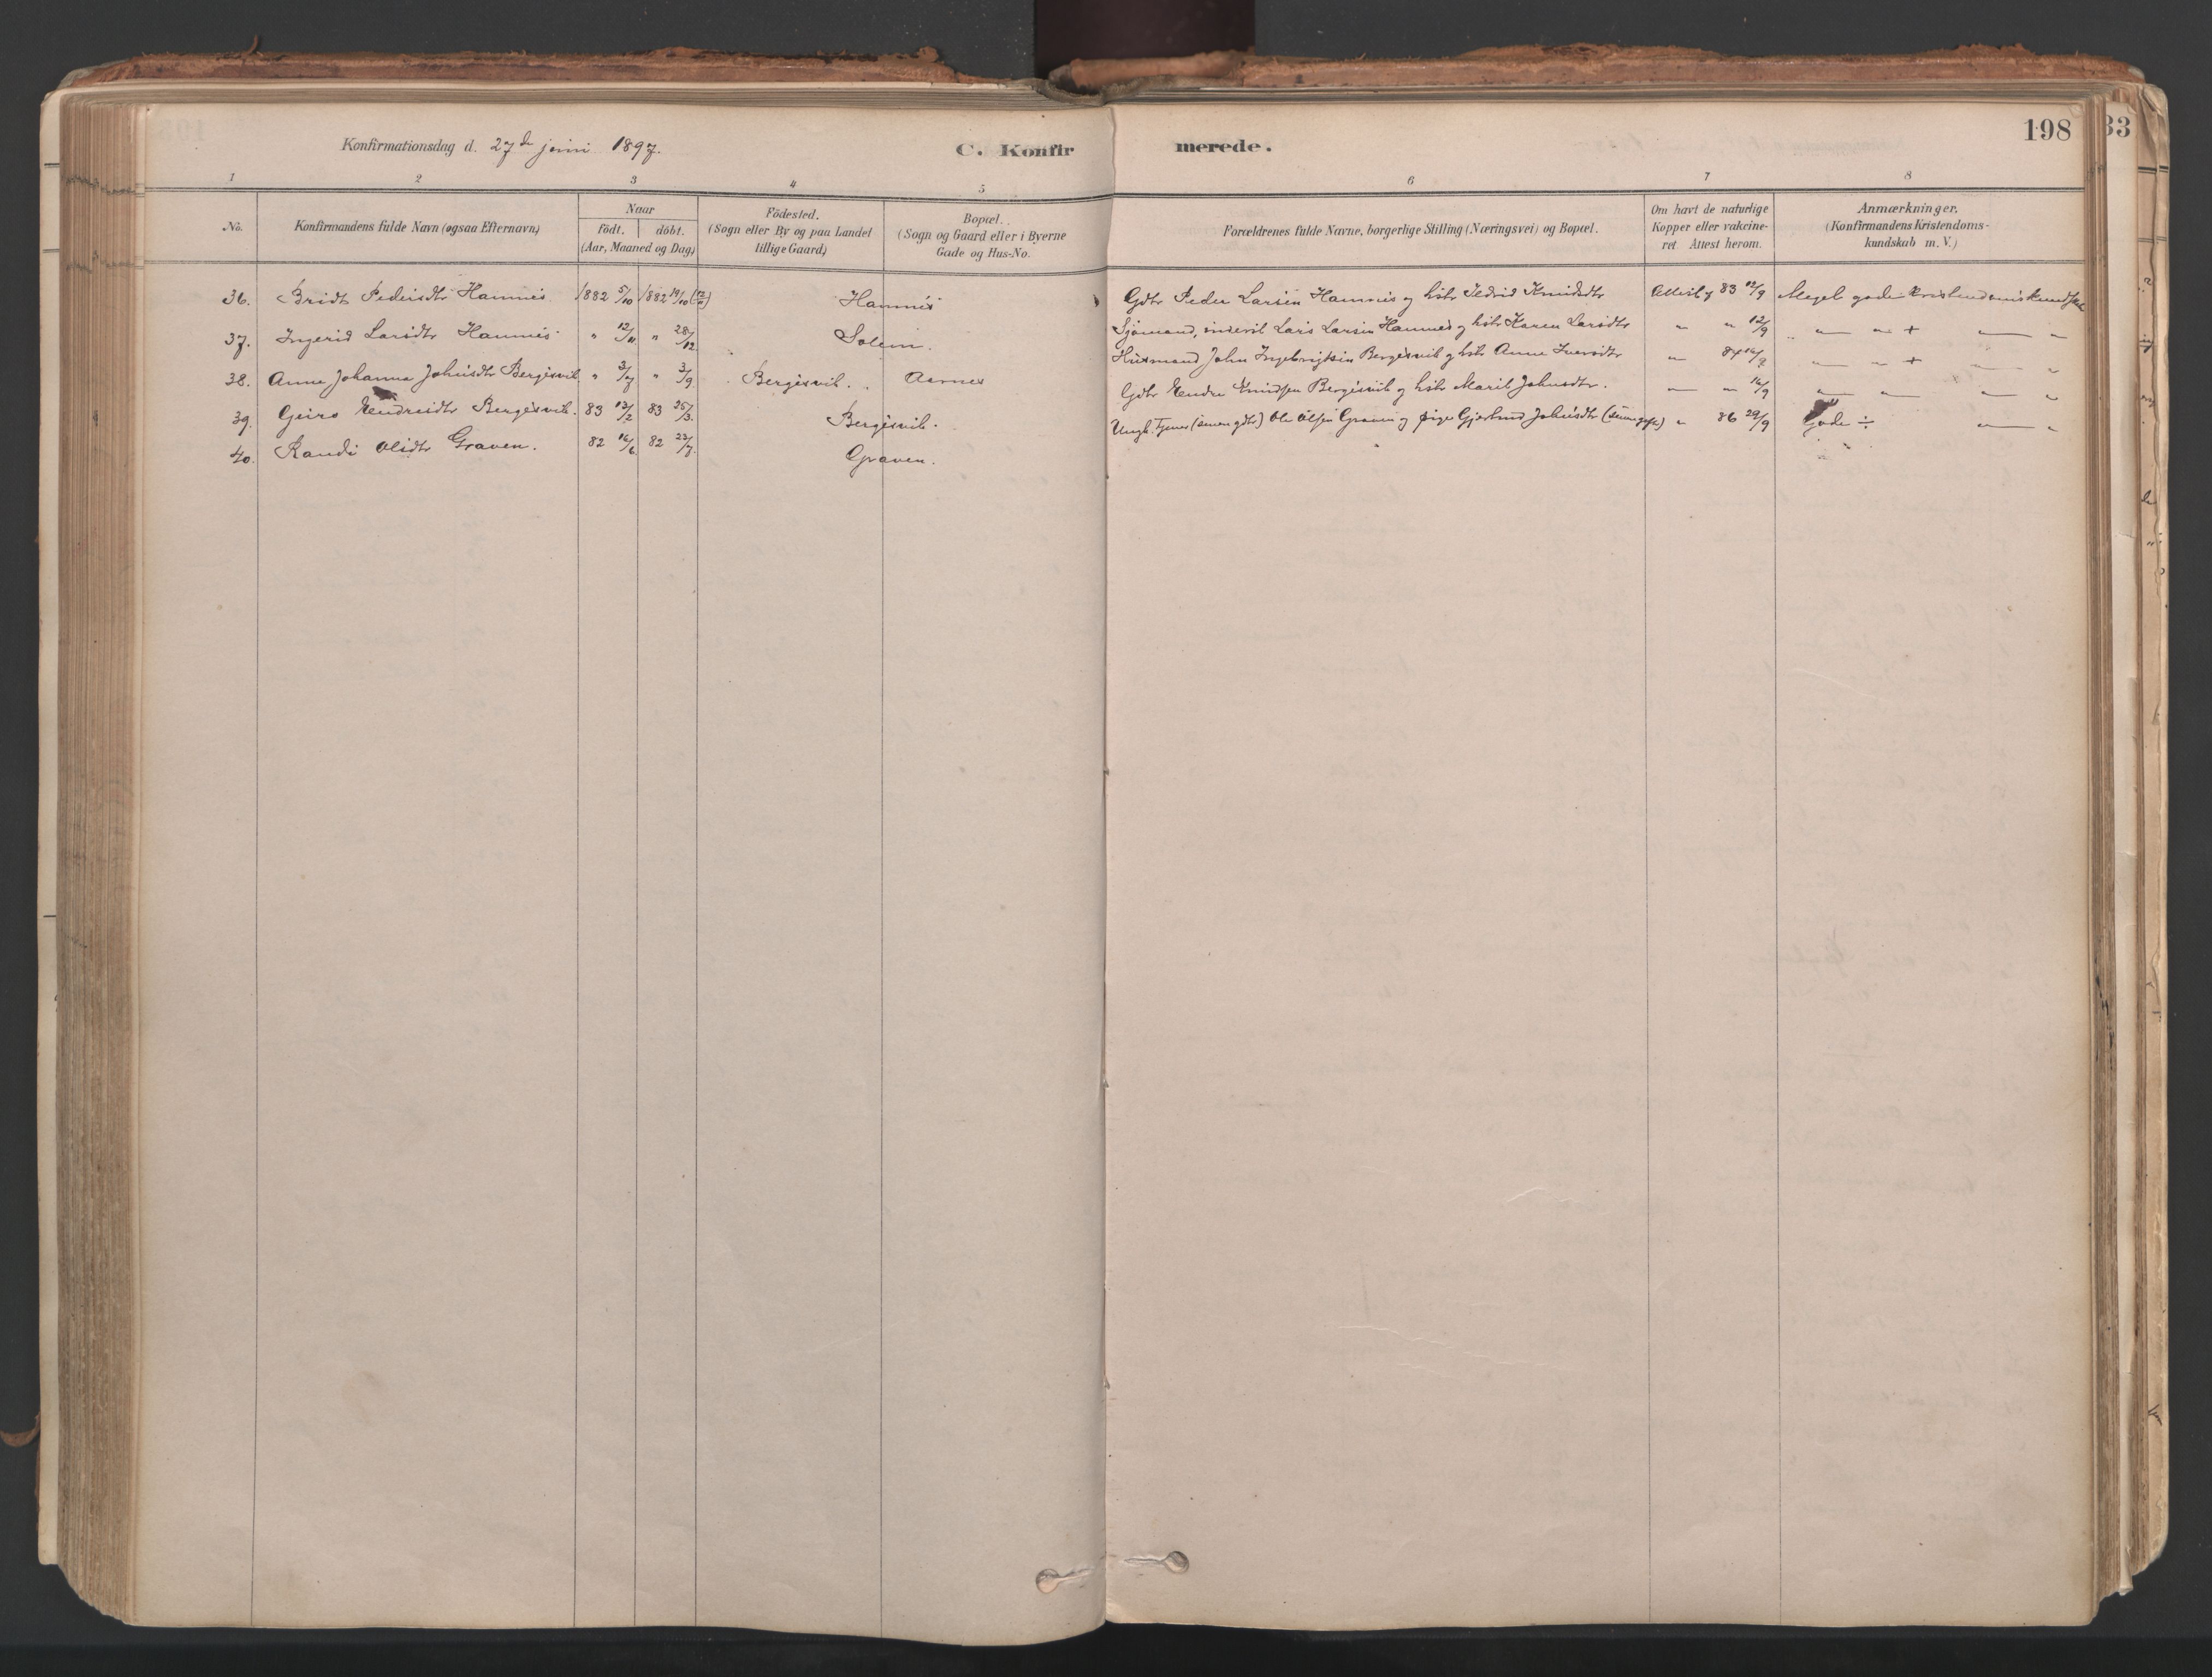 198
33
Konfirmationsdag d. 27de juni 1897.
C. Konfir merede.
1 2 3 4 5 6 7 8
No. Konfirmandens fulde Navn (ogsaa Efternavn)
Naar
födt. döbt.
(Aar, Maaned og Dag)
Födested.
(Sogn eller By og paa Landet
tillige Gaard)
Bopæl.
(Sogn og Gaard eller i Byerne
Gade og Hus-No.
Forældrenes fulde Navne, borgerlige Stilling (Næringsvei) og Bopæl.
Om havt de naturlige
Kopper eller vakcine-
ret. Attest herom.
Anmærkninger.
(Konfirmandens Kristendoms-
kundskab m. V.)
36. Bridt Pedersdtr Hamnes 1882 5/10 1882 19/10 Hamnes Gdbr Peder Larsen Hamnes og hstr Sedrid Knudsdtr Attest af 83 12/9 Meget gode kristendomskundskab
37. Ingerid Larsdtr Hamnes " 12/11 " 28/12 Solem. Sjömand, inderst Lars Larsen Hamnes og hstr Karen Larsdtr " " 12/9 " " + " "
38. Anne Johanna Johnsdtr Bergesvik " 3/7 " 3/9 Bergesvik. Aarnes Husmand John Ingebrigtsen Bergesvik og hstr Anne Iversdtr " 84 16/9 " " + " "
39. Geiro Endresdtr Bergesvik. 83 13/2 83 25/3 Bergesvik. Gdbr Endre Knudsen Bergesvik og hstr Marit Johnsdtr. " " 16/9 " " " "
40. Randi Olsdtr Graven. 82 16/6 82 23/7 Graven. Ungk. Tjener (senere gdbr) Ole Olsen Graven og pige Gjertrud Johnsdtr (senere gift) " 86 29/9 Gode ÷ " "